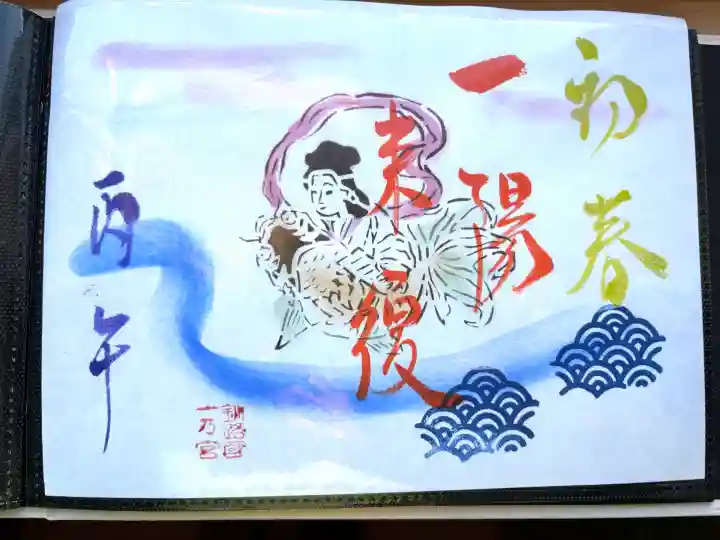 初春
一陽
来復
丙午
釧路国
一乃宮